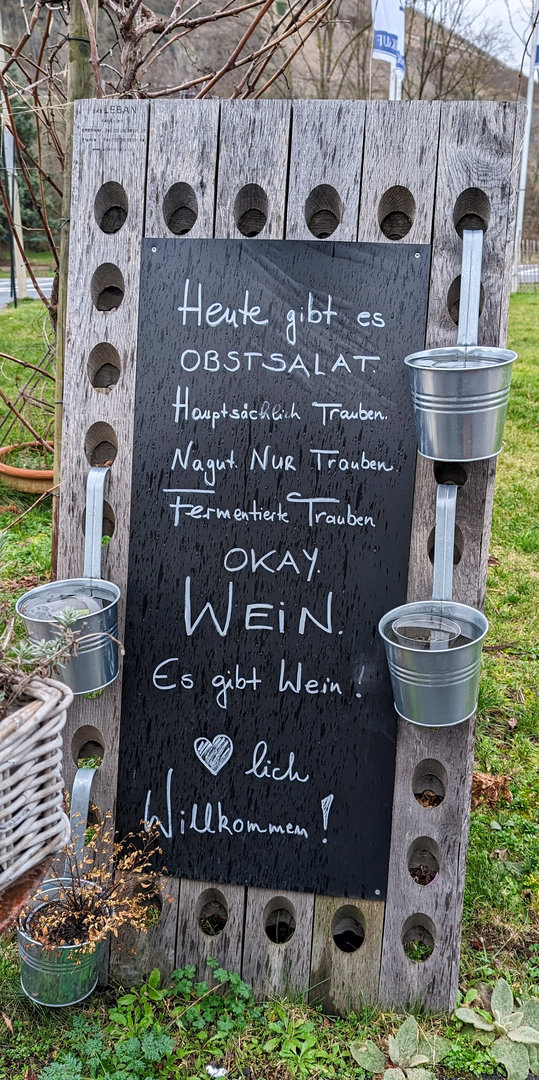 LEBAN
Heute gibt es
OBSTSALAT.
Hauptsächlich Trauben.
Nagut. NUR Trauben.
Fermentierte Trauben
OKAY.
WEIN.
Es gibt Wein!
♥lich
Willkommen!